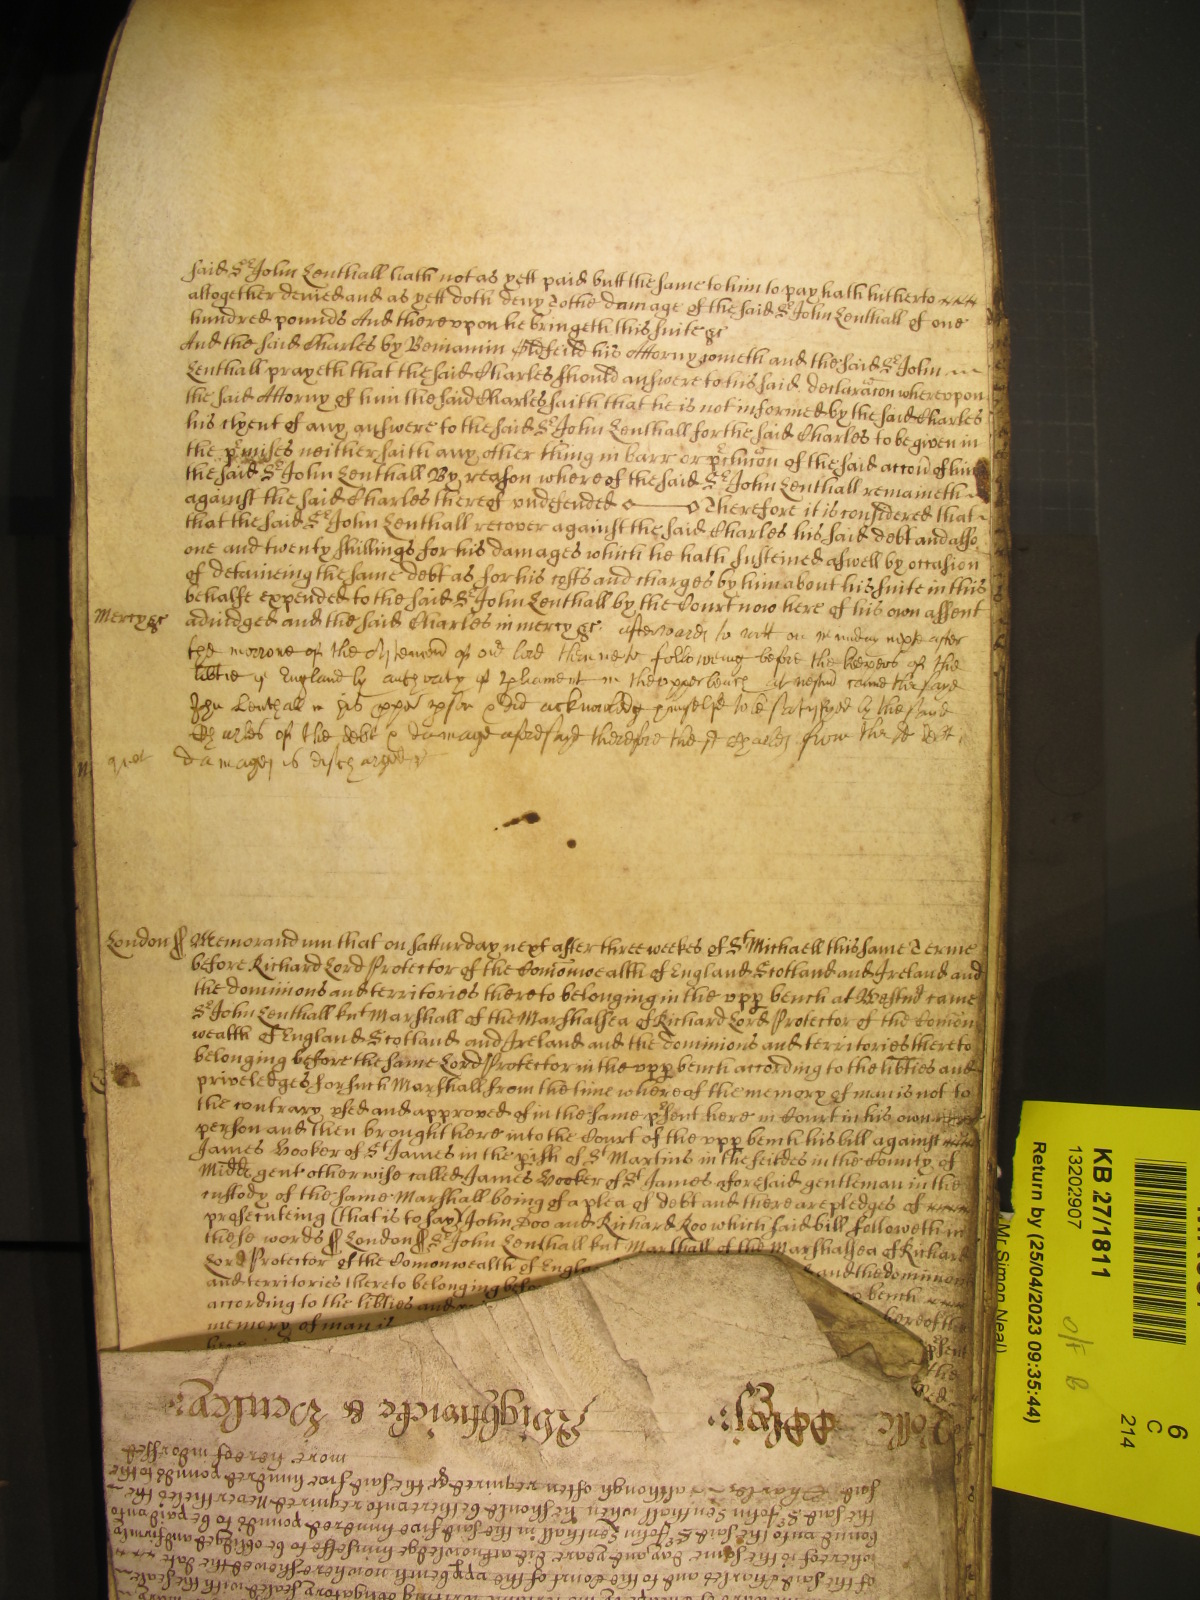 said Sr John Lenthall hath not as yett paid butt the same to him to pay hath hitherto
altogether denied and as yett doth deny to the damage of the said Sr John Lenthall of one
hundred pounds And thereupon he bringeth this suite &c
And the said Charles by Beniamin Oldfeild his Attorny cometh and the said Sr John
Lenthall prayeth that the said Charles should answere to his said declaracon whereupon
the said Attorny of him the said Charles saith that he is not informed by the said Charles
his clyent of any answere to the said Sr John Lenthall for the said Charles to be given in
the pmises neither saith any other thing in barr or pclucon of the said accon of him
the said Sr John Lenthall By reason whereof the said Sr John Lenthall remaineth
against the said Charles thereof vndefended Therefore it is considered that
that the said Sr John Lenthall recover against the said Charles his said debt and allso
one and twenty shillings for his damages which he hath susteined aswell by occasion
of detaineing the same debt as for his costs and charges by him about his suite in this
behalfe expended to the said Sr John Lenthall by the Court now here of his own assent
Mercy &c adiudged and the said Charles in mercy &c. afterwards to witt on munday next after
the morrowe of the of our lord then next followeing before the keepers of the
libtie of England by authority of Pliament in the vpper bench at Westmr came the said
John Lenthall in his pper pson & did acknowledg himselfe to be satisfyed by the said
Charles of the debt & damage aforesaid therefore the sd Charles from the sd debt
damages is discharged
London ss Memorandum that on satturday next after three weekes of St Michaell this same Terme
before Richard Lord Protector of the Comonwealth of England Scotland and Ireland and
the dominions and territories thereto belonging in the vpp bench at Westmr came
Sr John Lenthall knt Marshall of the Marshalsea of Richard Lord Protector of the Comon
wealth of England Scotland and Ireland and the dominions and territories thereto
belonging before the same Lord Protector in the vpp bench according to the libties and
priveledges for such Marshall from the time whereof the memory of man is not to
the contrary vsed and approved of in the same psent here in Court in his own
person and then brought here into the Court of the vpp bench his bill against
James Hooker of St James in the pish of St Martins in the feildes in the County of
Midd gent otherwise called James Hooker of St James aforesaid gentleman in the
custody of the same Marshall being of a plea of debt and there are pledges of
prosecuteing (that is to say) John Doo and Richard Roo which said bill followeth in
these words ss London ss Sr John Lenthall knt Marshall of the Marshalsea of Richard
Lord Protector of the Comonwealth of Engla and the dominions
and territories thereto belonging befo bench
according to the libties and whereof the
memory of man is psent
the
Rolle
more hereof indorssed
said Charles although often required &c the said five hundred pounds to the
the said Sr John Lenthall when he should be thereunto required Neverthelesse the
bound vnto the said Sr John Lenthall in the said five hundred pounds to be paid vnto
whereof is the same day and yeare did acknowledge himselfe to be obliged and firmely
of the said Charles and to the Court of the vpp bench now here shewed the date
writing obligatory sealed with the seale
KB 27/1811
13202907
Return by (25/04/2023 09:35:44)
Mr Simon Neal)
O/F B
6
C
214